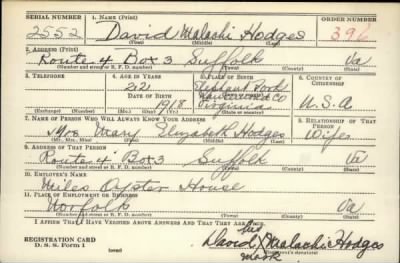 SERIAL NUMBER 1. NAME (Print) ORDER NUMBER
2552 David Malachi Hodges 396
(First) (Middle) (Last)
2. ADDRESS (Print)
Route 4 Box 3 Suffolk Va
(Number and street or R. F. D. number) (Town) (County) (State)
3. TELEPHONE 4. AGE IN YEARS 5. PLACE OF BIRTH 6. COUNTRY OF CITIZENSHIP
22 Elephant Fork
DATE OF BIRTH Nansemond Co
1918 Virginia U.S.A
(Exchange) (Number) (Mo.) (Day) (Yr.) (State or country)
7. NAME OF PERSON WHO WILL ALWAYS KNOW YOUR ADDRESS 8. RELATIONSHIP OF THAT PERSON
Mrs. Mary Elizabeth Hodges Wife
(Mr., Mrs., Miss) (First) (Middle) (Last)
9. ADDRESS OF THAT PERSON
Route 4 Box 3 Suffolk Va
(Number and street or R. F. D. number) (Town) (County) (State)
10. EMPLOYER'S NAME
Miles Oyster House
11. PLACE OF EMPLOYMENT OR BUSINESS
Norfolk Va
(Number and street or R. F. D. number) (Town) (County) (State)
I AFFIRM THAT I HAVE VERIFIED ABOVE ANSWERS AND THAT THEY ARE TRUE.
his
REGISTRATION CARD David X Malachi Hodges
D. S. S. Form 1 (over) mark (Registrant's signature)